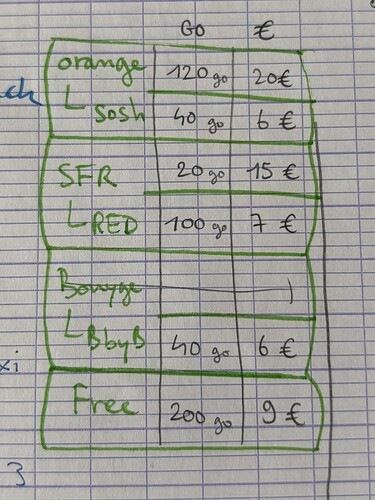 GO €
orange 120 go 20€
sosh 40 go 6 €
SFR 20 go 15 €
RED 100 go 7 €
Bouyge
BbyB 40 go 6 €
Free 200 go 9 €
3